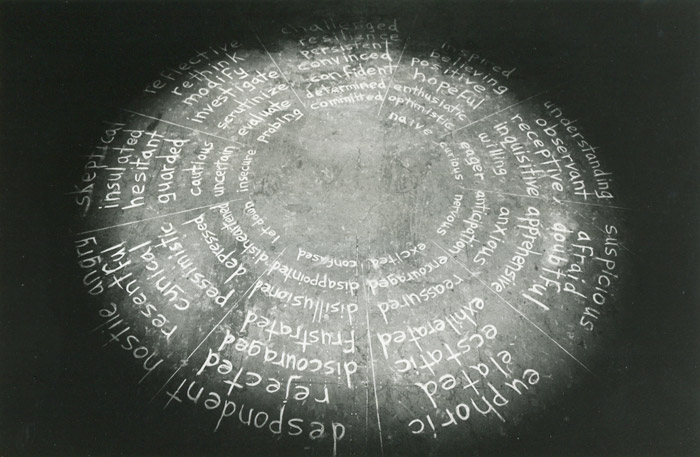 challenged
resilience
persistent
convinced
confident
determined
committed
inspired
believing
positive
hopeful
enthusiatic
optimistic
naive
understanding
observant
receptive
inquisitive
willing
eager
curious
suspicious
afraid
doubtful
apprehensive
anxious
anticipation
nervous
euphoric
elated
ecstatic
exhilerated
reassured
encouraged
excited
despondent
rejected
discouraged
frustrated
disillusioned
disappointed
confused
hostile angry
resentful
cynical
pessimistic
depressed
disheartened
let down
skeptical
insulated
hesitant
guarded
cautious
uncertain
insecure
reflective
rethink
modify
investigate
scrutinize
evaluate
probing